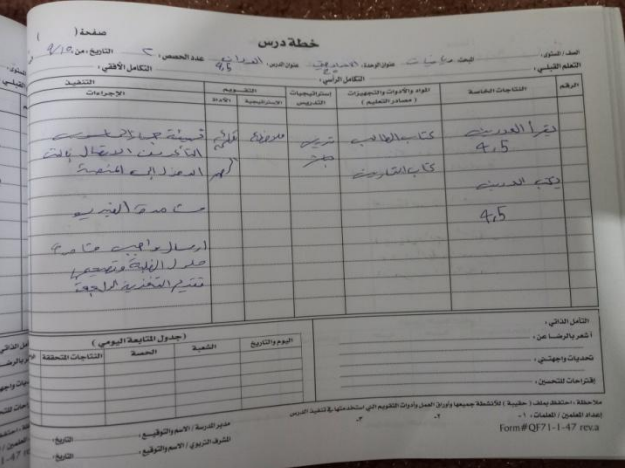 صفحة (        )
خطة درس
الصف / المستوى : المبحث رياضيات عنوان الوحدة: عنوان الدرس: العددان 4,5 عدد الحصص: ٢ التاريخ: من:
التعلم القبلي : التكامل الرأسي : التكامل الأفقي :
الرقم النتاجات الخاصة المواد والأدوات والتجهيزات ( مصادر التعليم ) إستراتيجيات التدريس التقويم الإستراتيجية الأداة التنفيذ الإجراءات
يقرأ العددين كتاب الطالب تدريس ملاحظة
4,5 مباشر
كتاب التمارين الدخول إلى المنصة
يكتب العددين
4,5 مشاهدة الفيديو
ارسال واجب متابعة
حلول الطلبة وتصحيح
تقديم التغذية الراجعة
التأمل الذاتي :
أشعر بالرضا عن :
تحديات واجهتني :
إقتراحات للتحسين :
( جدول المتابعة اليومي )
اليوم والتاريخ الشعبة الحصة النتاجات المتحققة
ملاحظة : احتفظ بملف ( حقيبة ) للأنشطة جميعها وأوراق العمل وأدوات التقويم التي استخدمتها في تنفيذ الدرس
إعداد المعلمين / المعلمات : ١- ٢- ٣-
مدير المدرسة / الاسم والتوقيع : التاريخ :
المشرف التربوي / الاسم والتوقيع : التاريخ :
Form#QF71-1-47 rev.a